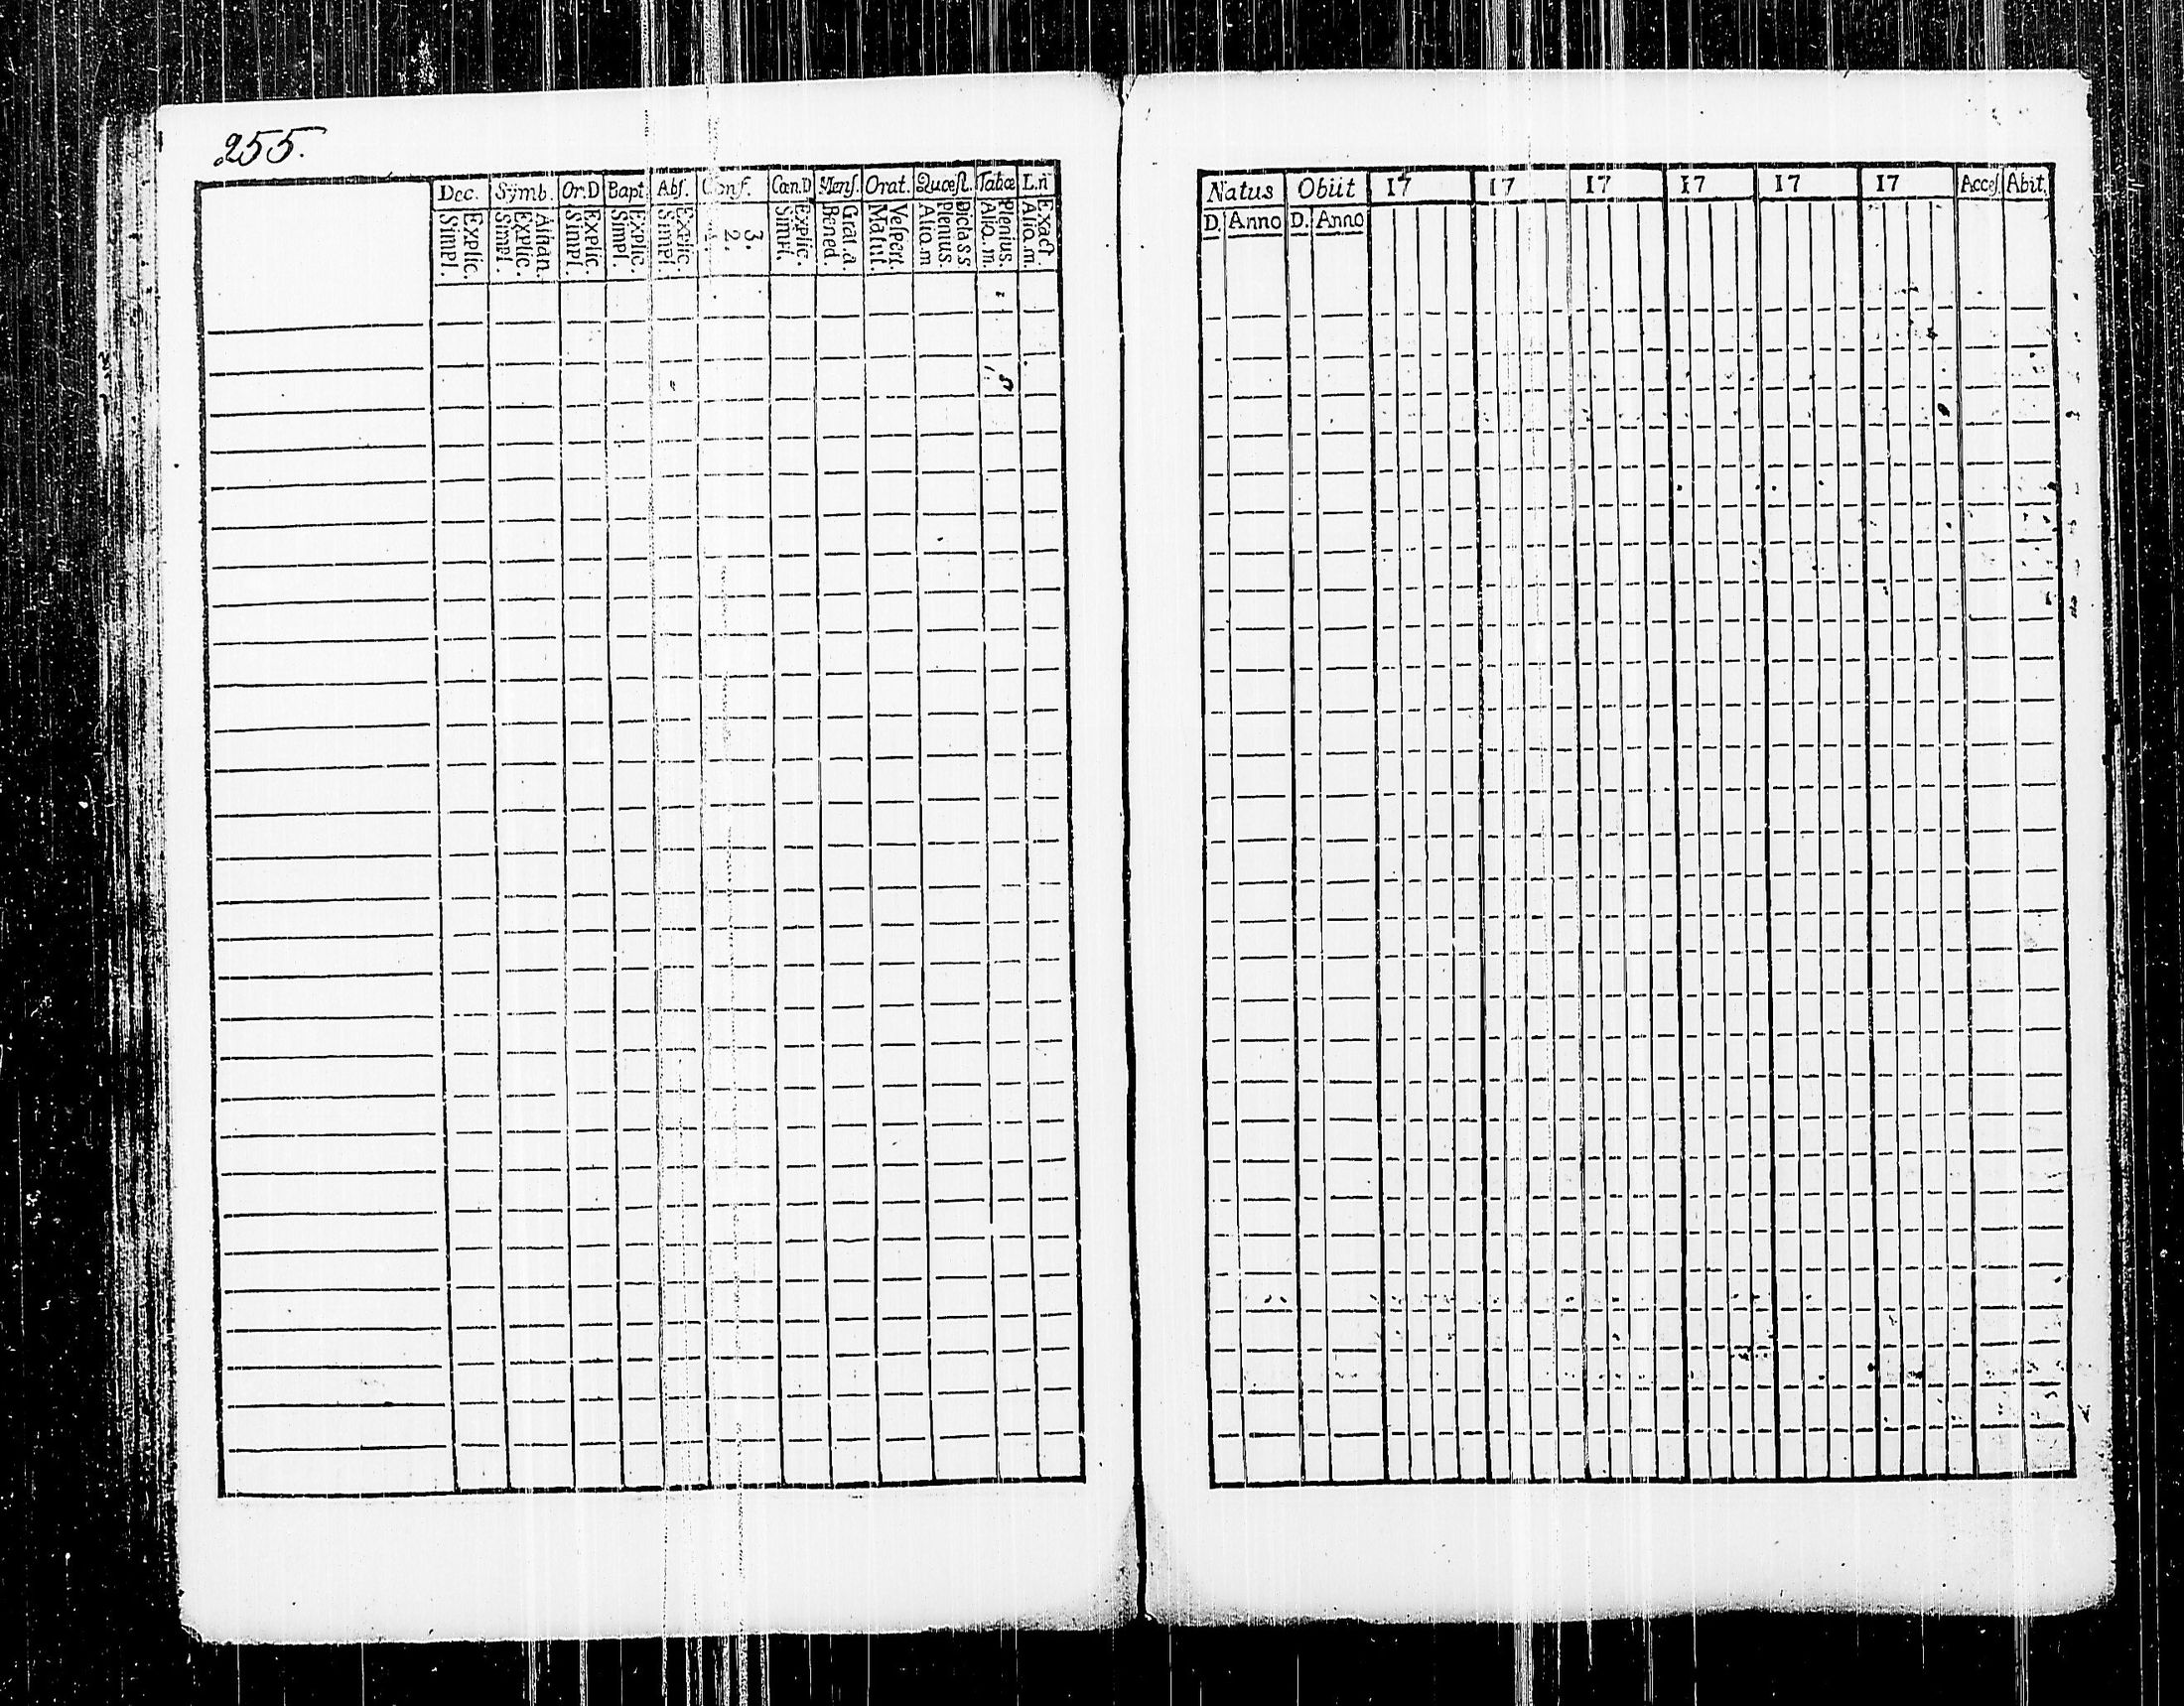 255.
Dec. Symb. Or.D Bapt. Abſ. Conf. Can.D Menſ. Orat. Quæſt. Tabæ L.n
Simpl. Explic. Simpl. Explic. Athan. Simpl. Explic. Simpl. Explic. Simpl. Explic. 2. 3. Simpl. Explic. Bened. Grat.a. Matut. Veſpert. Aliq.m Plenius. Dicta s.s. Aliq.m. Plenius. Aliq.m. Exact.
Natus Obiit 17 17 17 17 17 17 Acceſ. Abit.
D. Anno D. Anno